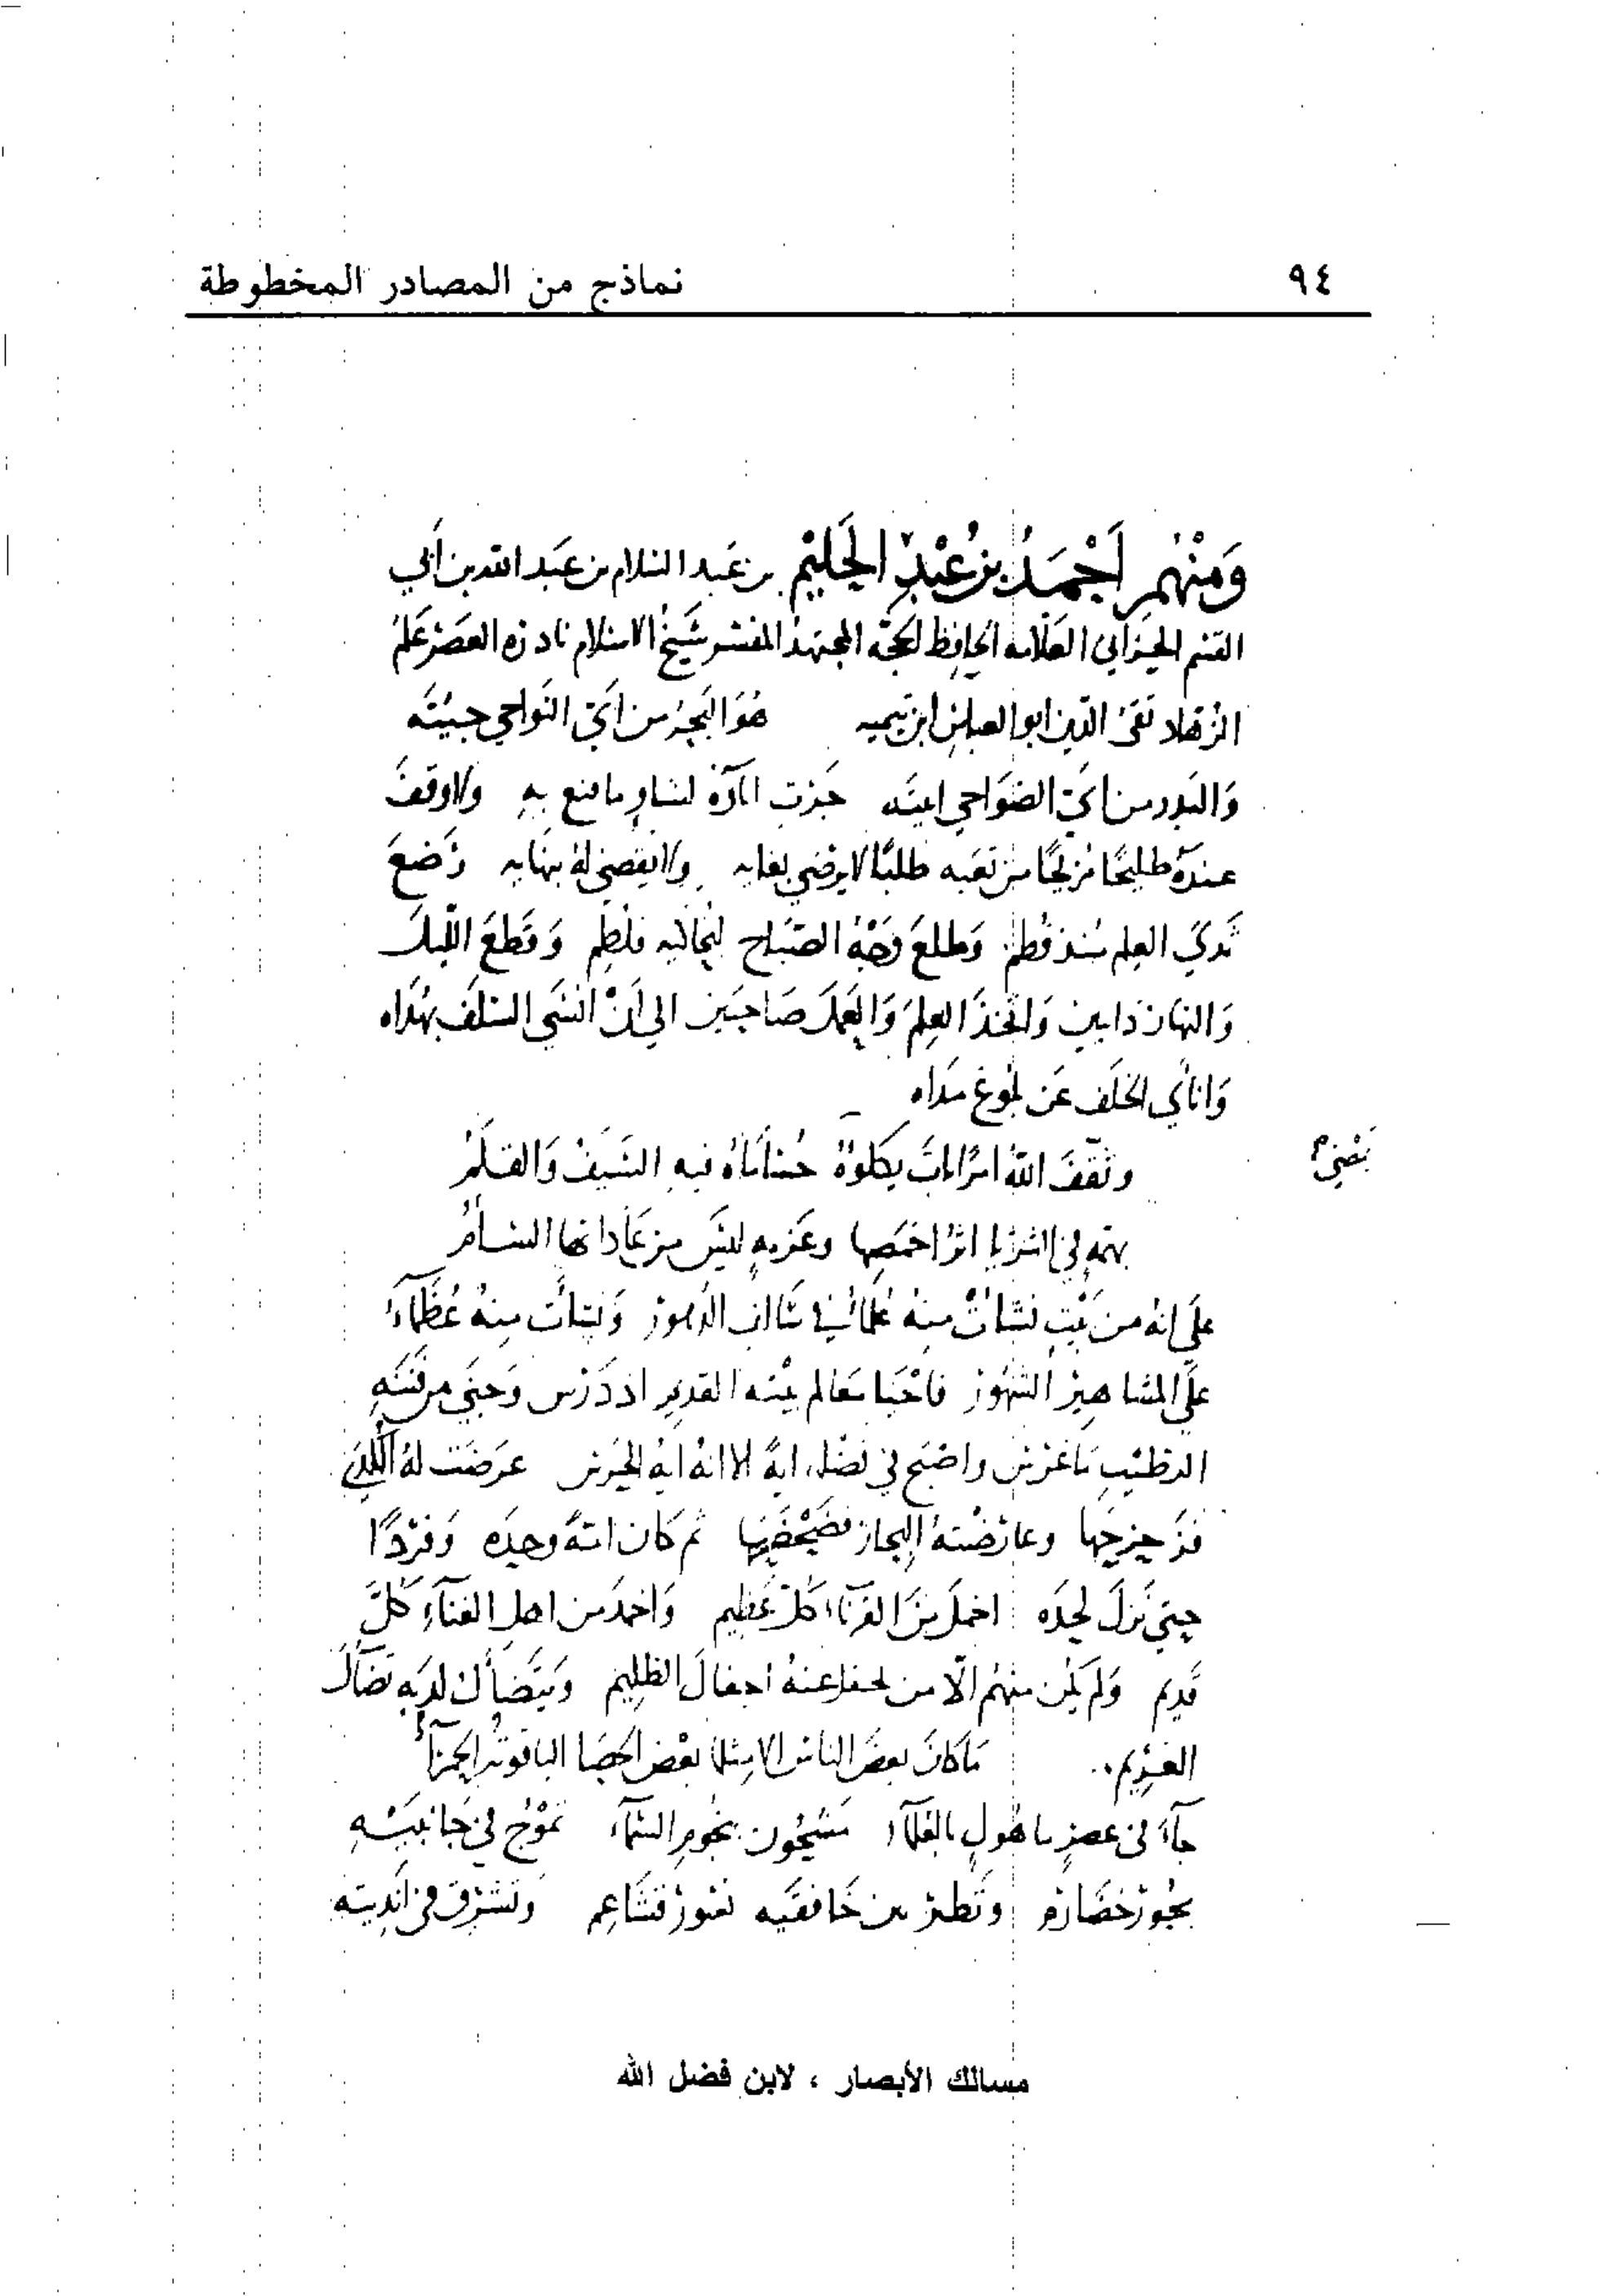 ٩٤ نماذج من المصادر المخطوطة
وَمنْهُم أَحْمَدُ بنُ عَبْدِ الحَليْم بن عَبد السلام بن عَبد الله بن أبي
القسم الحَرَّاني العَلّامه الحَافِظ الحجّه المجتهدُ المفسّر شَيخُ الاسلام نادرة العَصْر عَلمُ
الزهّاد تقيّ الدّين ابو العباس ابن تيميه هُوَ البَحرُ من ايّ النّواحي جيئتَه
وَالبَدر من ايّ الضّوَاحي اتيتَه جَرَت اباؤه لشاوٍ ما قنع بهِ ولا وقفَ
عندَهُ طليحًا مُريحًا من تعَبه طلبًا لا يرضي بغايه ولا يقضي لهُ بنهايه رَضعَ
ثَديَ العِلم مُنذ فُطم وَطلعَ وَجْهُ الصّبَاح ليُحاكيه فلُطِم وَقطعَ الليلَ
وَالنهارَ دَايبين وَاتخذَ العِلمَ وَالعَملَ صَاحبَين الي أنْ أنسَي السّلَف بهُدَاه
وَانأي الخلَف عَن بلُوغ مَدَاه
وثقّفَ اللهُ امرًا باتَ يكلوهُ يمضي حُسنًا
بهمّهٍ في الثريّا اثرُ اخمَصِها وعَزمهٍ ليسَ من عَاداتها السأمُ
علي انهُ من بَيتٍ نشأتْ منهُ عُلمَاءُ في سَالف الدهور وَنشأت منهُ عُظَمَاءُ
علَي المشاهيْر الشهُور فأحْيَا مَعَالم بيْته القديم اذ دَرَس وَجَنَي من فننه
الرطيْبِ مَا غَرَسَ واصْبَح في فضْله ايةً الا انهُ ايهُ الحَرَس عرَضَت لهُ الكُدَي
فزَحزحَها وعارَضتهُ البحَار فضَحْضَحَها ثم كان امّةً وحدَه وَفرْدًا
حتي نَزلَ لحدَه اخملَ منَ القُرَناءِ كلّ عَظيم وَاخمدَ من اهل الفنَاءِ كُلّ
قَديم وَلم يَكُن منهُم الّا من يجفل عنهُ اجفالَ الظليم وَيتَضَأَلُ لديَه تضَأُلَ
الغَريْم مَا كانَ بعضُ الناس الا مثلمَا بَعْض الحصَا الياقوتَة الحمرَآءُ
جآءَ في عَصرٍ مأهُولٍ بالعُلمآءِ مَشحُونٍ بنجُوم السّمآءِ تَمُوْجُ في جَانبَيْهِ
بحُوْر خضَارم وَتَطيْر بين خَافقَيه نسُورُ قشَاعم وَتشْرق في انديتهِ
مسالك الأبصار ، لابن فضل الله